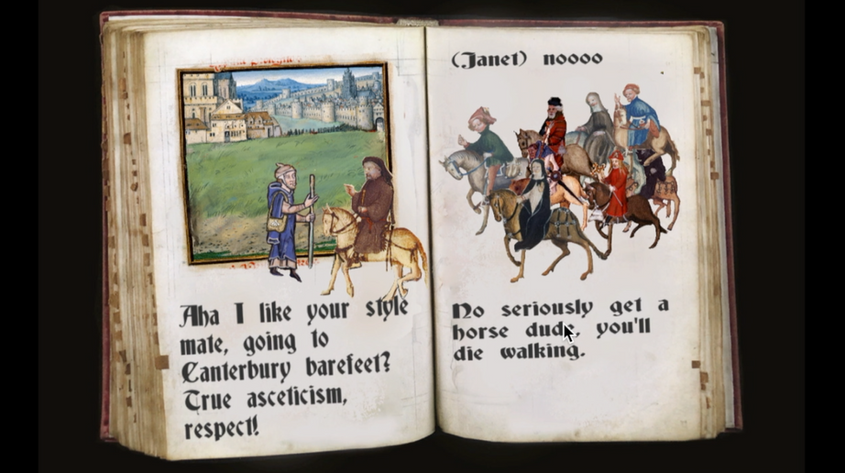 Aha I like your style
mate, going to
Canterbury barefeet?
True asceticism,
respect!
(Janet) noooo
No seriously get a
horse dude, you'll
die walking.